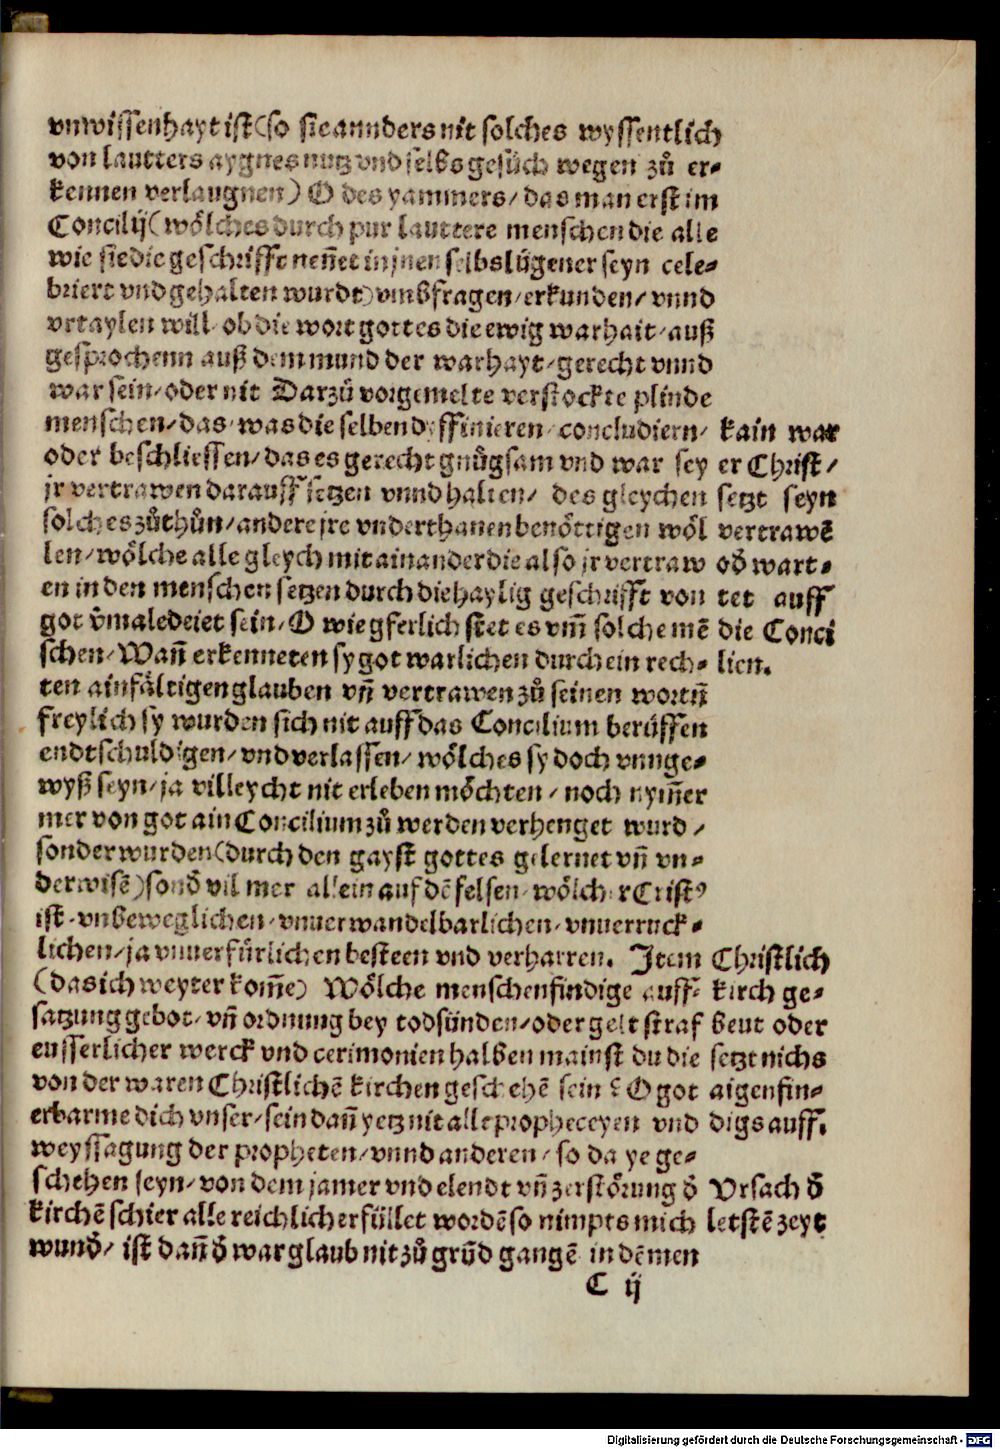 vnwissenhayt ist (so sie annders nit solches wyssentlich
von lautters aygnes nutz vnd selbs gesůch wegen zů er-
kennen verlaugnen) O des yammers / das man erst im
Concilij (wölches durch pur lauttere menschen die alle
wie sie die geschrifft nen̄et in jnen selbs lügener seyn cele-
briert vnd gehalten wurdt) vmbfragen / erkunden / vnnd
vrtaylen will ob die wort gottes die ewig warhait / auß
gesprochenn auß dem mund der warhayt / gerecht vnnd
war sein / oder nit Darzů vorgemelte verstockte plinde
menschen / das / was die selben dyffinieren / concludiern /
oder beschliessen / das es gerecht gnůgsam vnd war sey
jr vertrawen darauff setzen vnnd halten / des gleychen
solches zůthůn / andere jre vnderthanen benöttigen wöl
len / wölche alle gleych mit ainander die also jr vertraw
en in den menschen setzen durch die haylig geschrifft von
got v̊maledeiet sein / O wie gferlich stet es vm̄ solche mē
schen / Wan̄ erkenneten sy got warlichen durch ein rech-
ten ainfältigen glauben vn̄ vertrawen zů seinen wortn̄
freylich sy wurden sich nit auff das Concilium berüffen
endtschuldigen / vnd verlassen / wölches sy doch vnnge-
wyß seyn / ja villeycht nit erleben möchten / noch nym̄er
mer von got ain Concilium zů werden verhenget wurd /
sonder wurden (durch den gayst gottes gelernet vn̄ vn-
derwisē) sond̄ vil mer allein auf dē felsen wölcher Crist9
ist / vnbeweglichen / vnuerwandelbarlichen / vnuerruck-
lichen / ja vnuerfürlichen besteen vnd verharren. Item
(das ich weyter kom̄e) Wölche menschenfindige auff-
satzung gebot / vn̄ ordnung bey todsünden / oder gelt straf
eusserlicher werck vnd cerimonien halben mainst du die
von der waren Christlichē kirchen geschehē sein? O got
erbarme dich vnser / sein dan̄ yetz nit alle propheceyen vnd
weyssagung der propheten / vnnd anderen / so da ye ge-
schehen seyn / von dem jamer vnd elendt vn̄ zerstörung d̄
kirchē schier alle reichlich erfüllet wordē so nimpts mich
wund̄ / ist dan̄ d̄ war glaub nit zů grūd gangē in dē men
C ij
kain war
er Christ /
setzt seyn
vertrawē
od̄ wart-
tet auff
die Conci
lien.
Christlich
kirch ge-
beut oder
setzt nichs
aigenfin-
digs auff.
Vrsach d̄
letstē zeyt
Digitalisierung gefördert durch die Deutsche Forschungsgemeinschaft - DFG